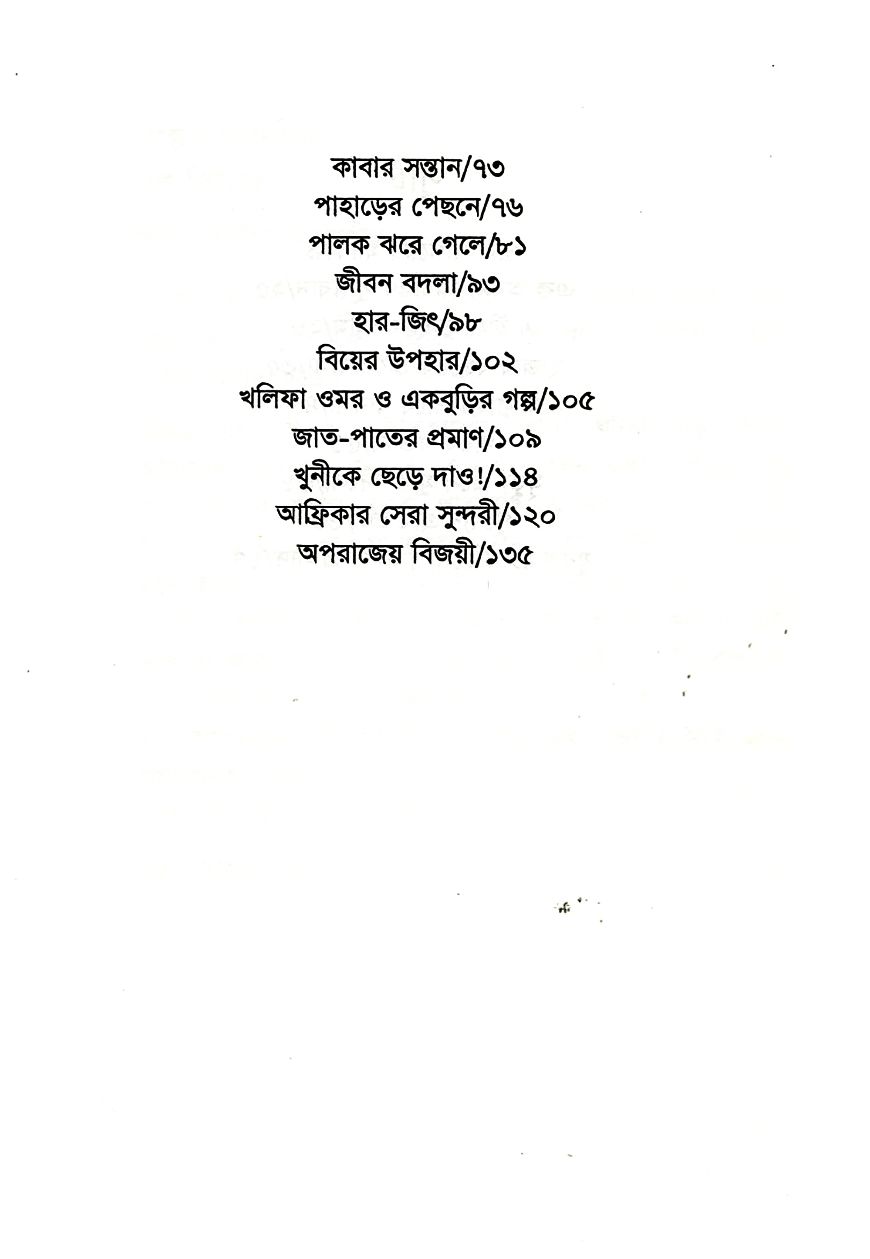 কাবার সন্তান/৭৩
পাহাড়ের পেছনে/৭৬
পালক ঝরে গেলে/৮১
জীবন বদলা/৯৩
হার-জিৎ/৯৮
বিয়ের উপহার/১০২
খলিফা ওমর ও একবুড়ির গল্প/১০৫
জাত-পাতের প্রমাণ/১০৯
খুনীকে ছেড়ে দাও!/১১৪
আফ্রিকার সেরা সুন্দরী/১২০
অপরাজেয় বিজয়ী/১৩৫